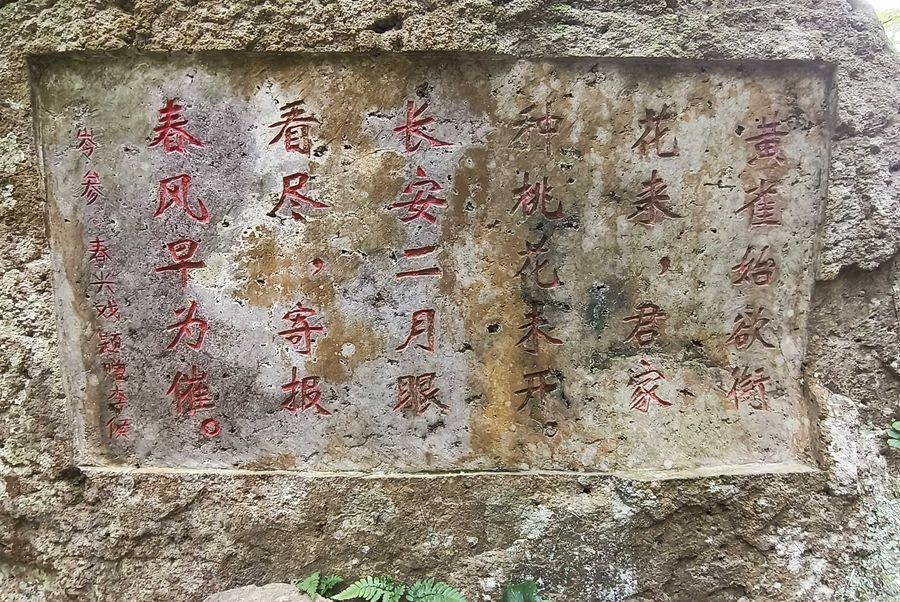 黄雀始欲衔
花来，君家
种桃花未开。
长安二月眼
看尽，寄报
春风早为催。
岑参。春兴戏题赠李侯